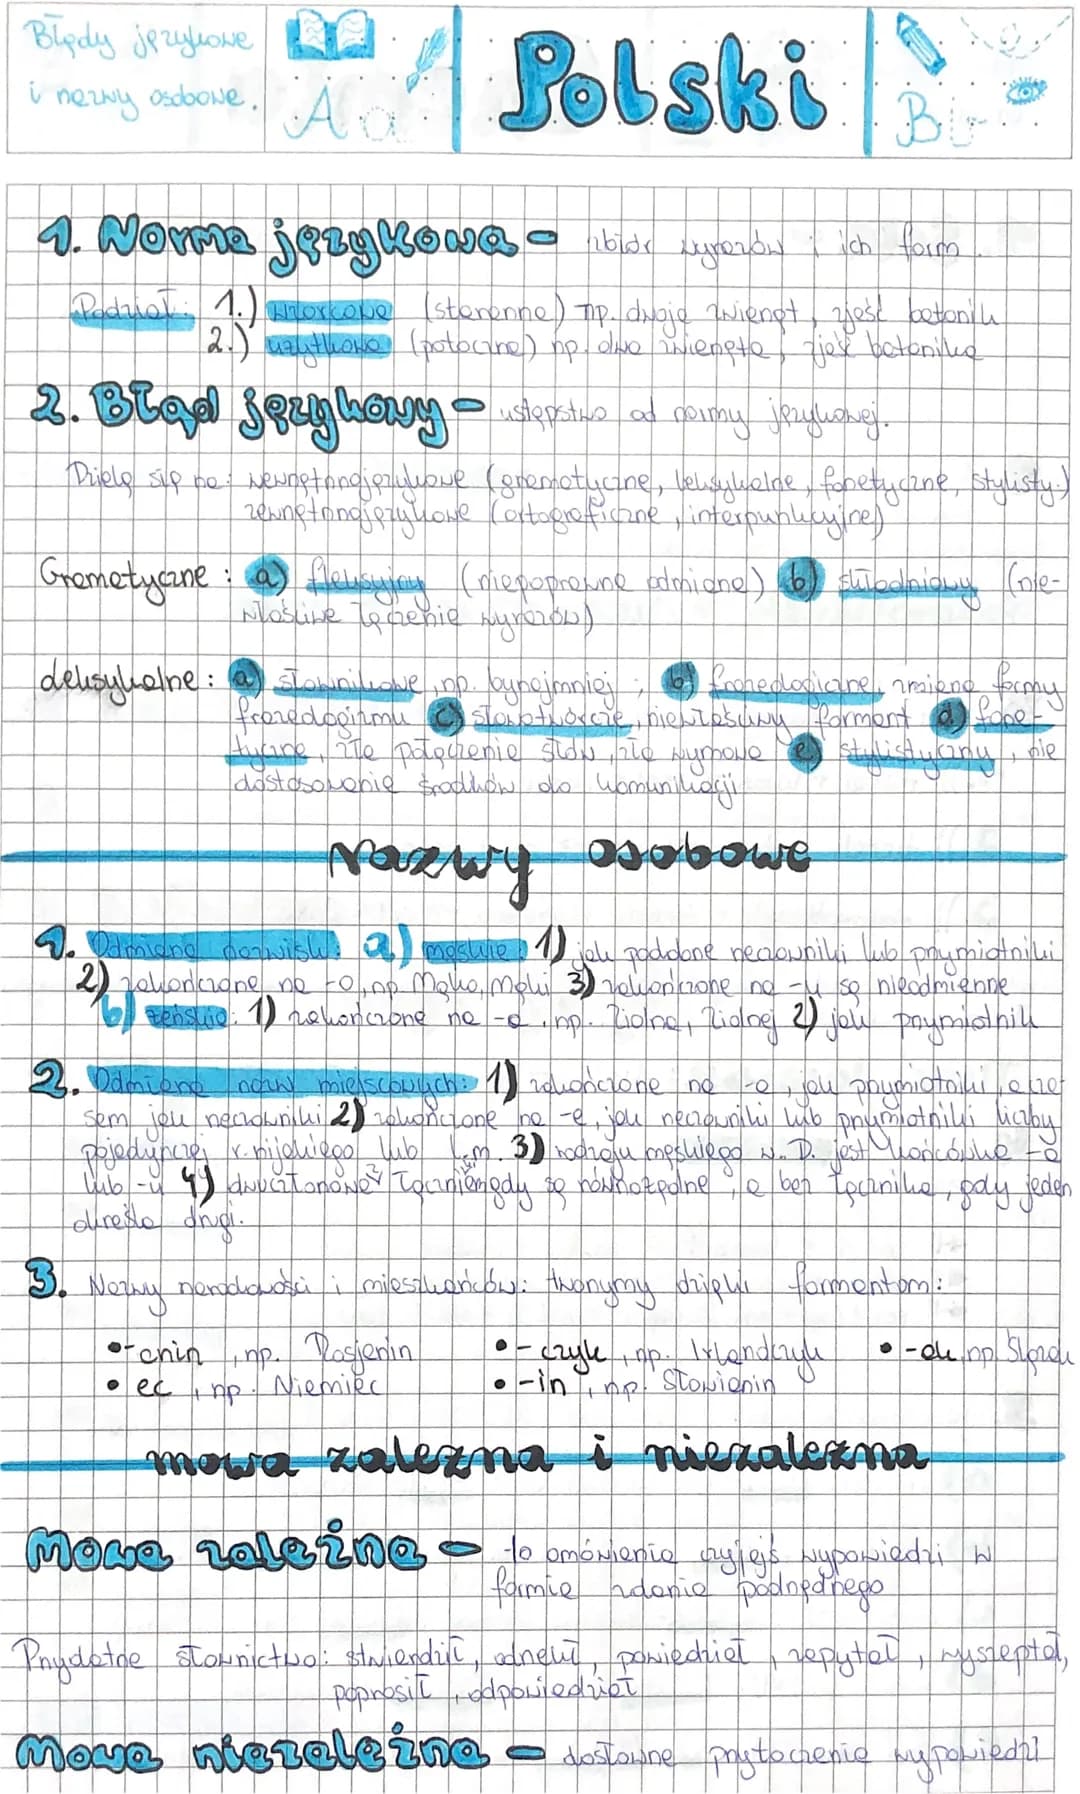 Błędy językowe
i nazwy osobowe.
Aa
Polski
Bb
1. Norma językowa - zbiór wyrazów i ich form.
Podział: 1.) wzorcowa (staranna) np. dwoje zwierząt, zjeść batonik
2.) użytkowa (potoczna) np. dwa zwierzęta, zjeść batonika
2. Błąd językowy - ustępstwo od normy językowej.
Dzielą się na: wewnętrznojęzykowe (gramatyczne, leksykalne, fonetyczne, stylisty.)
zewnętrznojęzykowe (ortograficzne, interpunkcyjne)
Gramatyczne: a) fleksyjny (niepoprawna odmiana) b) składniowy (nie-
właściwe łączenie wyrazów)
deksykalne: a) słownikowe, np. bynajmniej; b) frazeologiczne, zmiana formy
frazeologizmu c) słowotwórcze, niewłaściwy formant d) fone-
tyczne, złe połączenie słów, zła wymowa e) stylistyczny, nie
dostosowanie środków do komunikacji
Nazwy osobowe
1. Odmiana nazwisk: a) męskie: 1) jak podobne rzeczowniki lub przymiotniki
2) zakończone na -o, np. Mańko, Mańki 3) zakończone na -u są nieodmienne
b) żeńskie: 1) zakończone na -a, np. Ziolna, Ziolnej 2) jak przymiotnik
2. Odmiana nazw miejscowych: 1) zakończone na -a, jak przymiotniki, a cza-
sem jak rzeczowniki 2) zakończone na -e, jak rzeczowniki lub przymiotniki liczby
pojedynczej r. nijakiego lub l.m. 3) rodzaju męskiego w D. jest końcówka -a
lub -u 4) dwuczłonowe z łącznikiem gdy są równorzędne, a bez łącznika, gdy jeden
określa drugi.
3. Nazwy narodowości i mieszkańców: tworzymy dzięki formantom:
• -anin, np. Rosjanin • -czyk, np. Irlandczyk • -ak, np. Słowak
• ec, np. Niemiec • -in, np. Słowianin
mowa zależna i niezależna
Mowa zależna - to omówienia czyjejś wypowiedzi w
formie zdania podrzędnego
Przydatne słownictwo: stwierdził, odrzekł, powiedział, zapytał, wyszeptał,
poprosił, odpowiedział
Mowa niezależna - dosłowne przytoczenie wypowiedzi